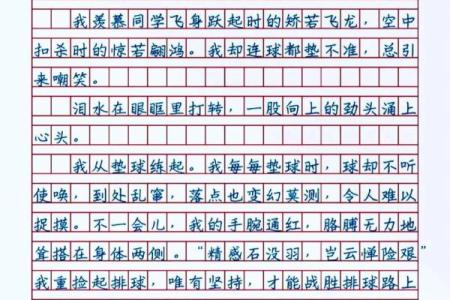 我羡慕同学飞身跃起时的矫若飞龙，空中
扣杀时的惊若翩鸿。我却连球都垫不准，总引
来嘲笑。
泪水在眼眶里打转，一股向上的劲头涌上
心头。
我从垫球练起。我每每垫球时，球却不听
使唤，到处乱窜，落点也变幻莫测，令人难以
捉摸。不一会儿，我的手腕通红，胳膊无力地
耷搭在身体两侧。“精感石没羽，岂云惮险艰”
我重捡起排球，唯有坚持，才能战胜排球路上